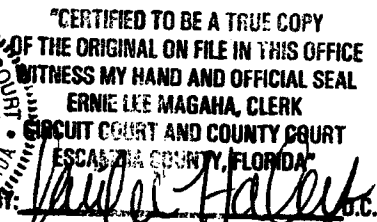 "CERTIFIED TO BE A TRUE COPY
OF THE ORIGINAL ON FILE IN THIS OFFICE
WITNESS MY HAND AND OFFICIAL SEAL
ERNIE LEE MAGAHA, CLERK
CIRCUIT COURT AND COUNTY COURT
ESCAMBIA COUNTY, FLORIDA"
D.C.